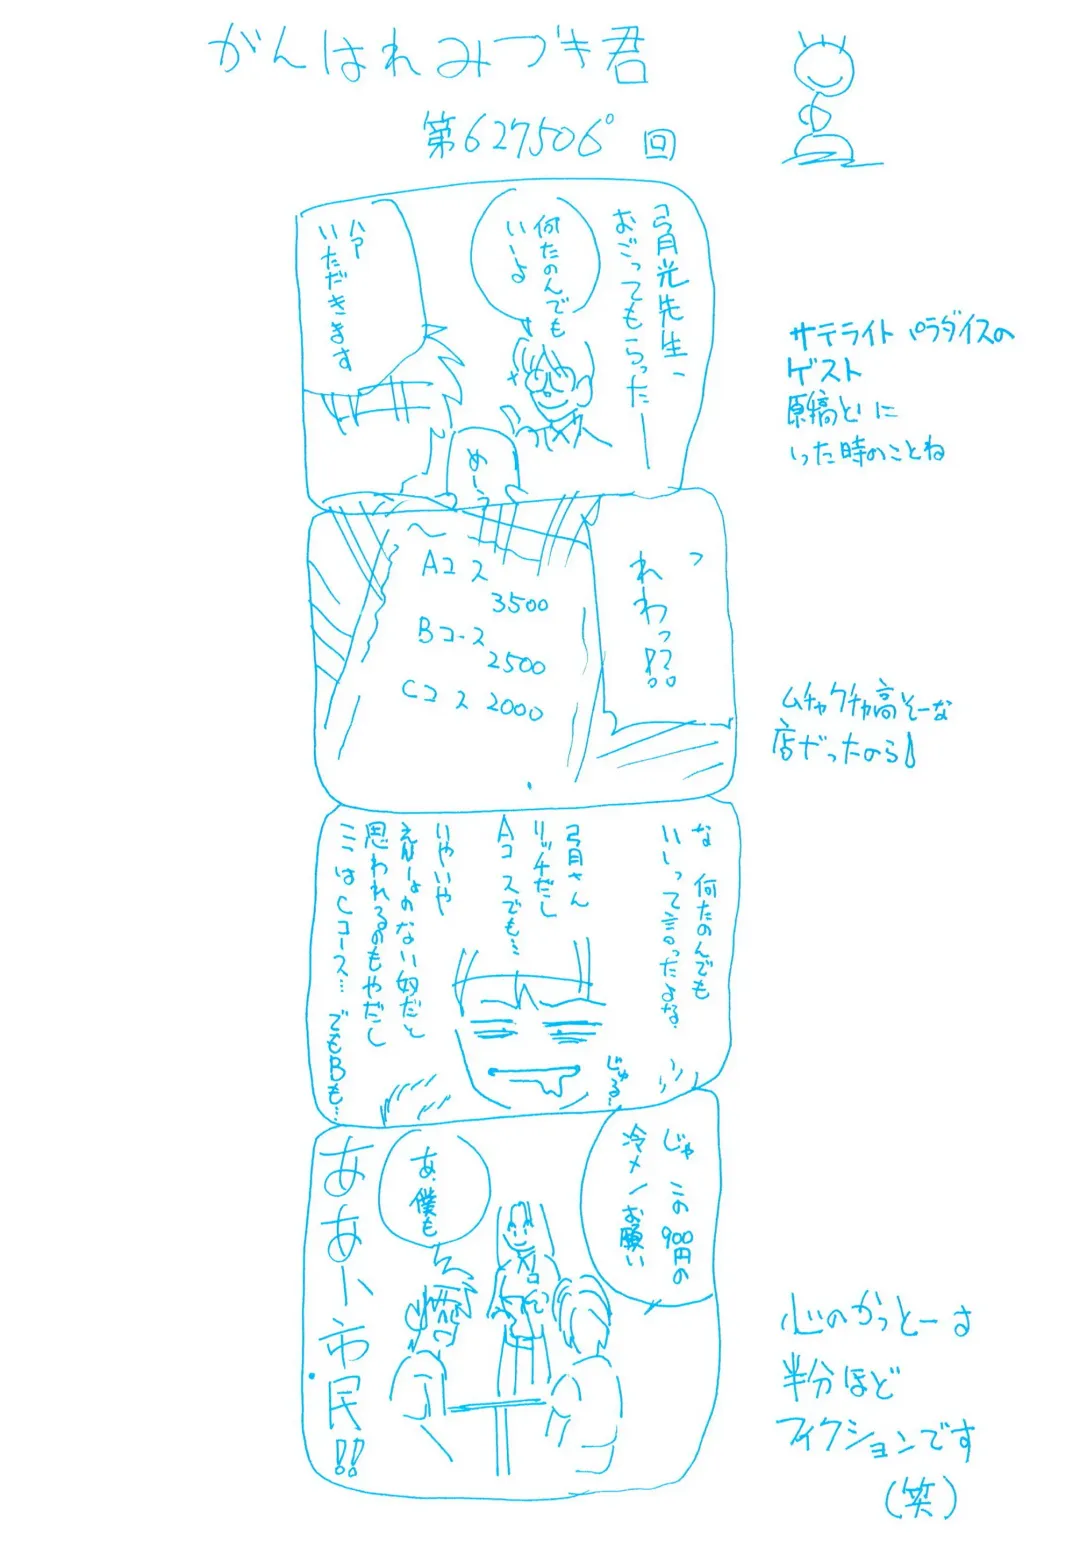 がんばれみづき君
第627506回
弓月光先生、
おごってもらったー
何たのんでも
いーよ
ハァ
いただきます
めーう
サテライトパラダイスの
ゲスト
原稿とりに
いった時のことね
っ
れわっ!?
Aコース
3500
Bコース
2500
Cコース 2000
ムチャクチャ高そーな
店だったのら
な 何たのんでも
いいって言ったよな
弓月さん
リッチだし
Aコースでも…
いやいや
えんりょのない奴だと
思われるのもやだし
ここはCコース… でもBも…
じゅる
じゃ この900円の
冷メンお願い
あ、僕も
ああ、市民!!
心のかっとーは
半分ほど
フィクションです
(笑)